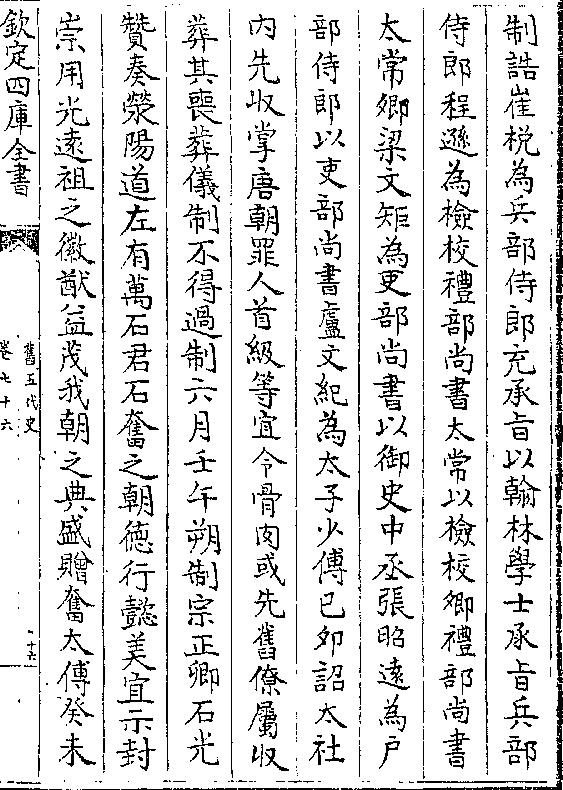 制誥崔梲為兵部侍郎充承旨以翰林學士承旨兵部
侍郎程遜為檢校禮部尚書太常以檢校卿禮部尚書
太常卿梁文矩為吏部尚書以御史中丞張昭遠為戶
部侍郎以吏部尚書盧文紀為太子少傅己卯詔太社
内先收掌唐朝罪人首級等宜令骨肉或先舊僚屬收
葬其喪葬儀制不得過制六月壬午朔制宗正卿石光
贊奏滎陽道左有萬石君石奮之朝德行懿美宜示封
崇用光遠祖之徽猷益茂我朝之典盛贈奮太傅癸未
欽定四庫全書
舊五代史
卷七十六
十六